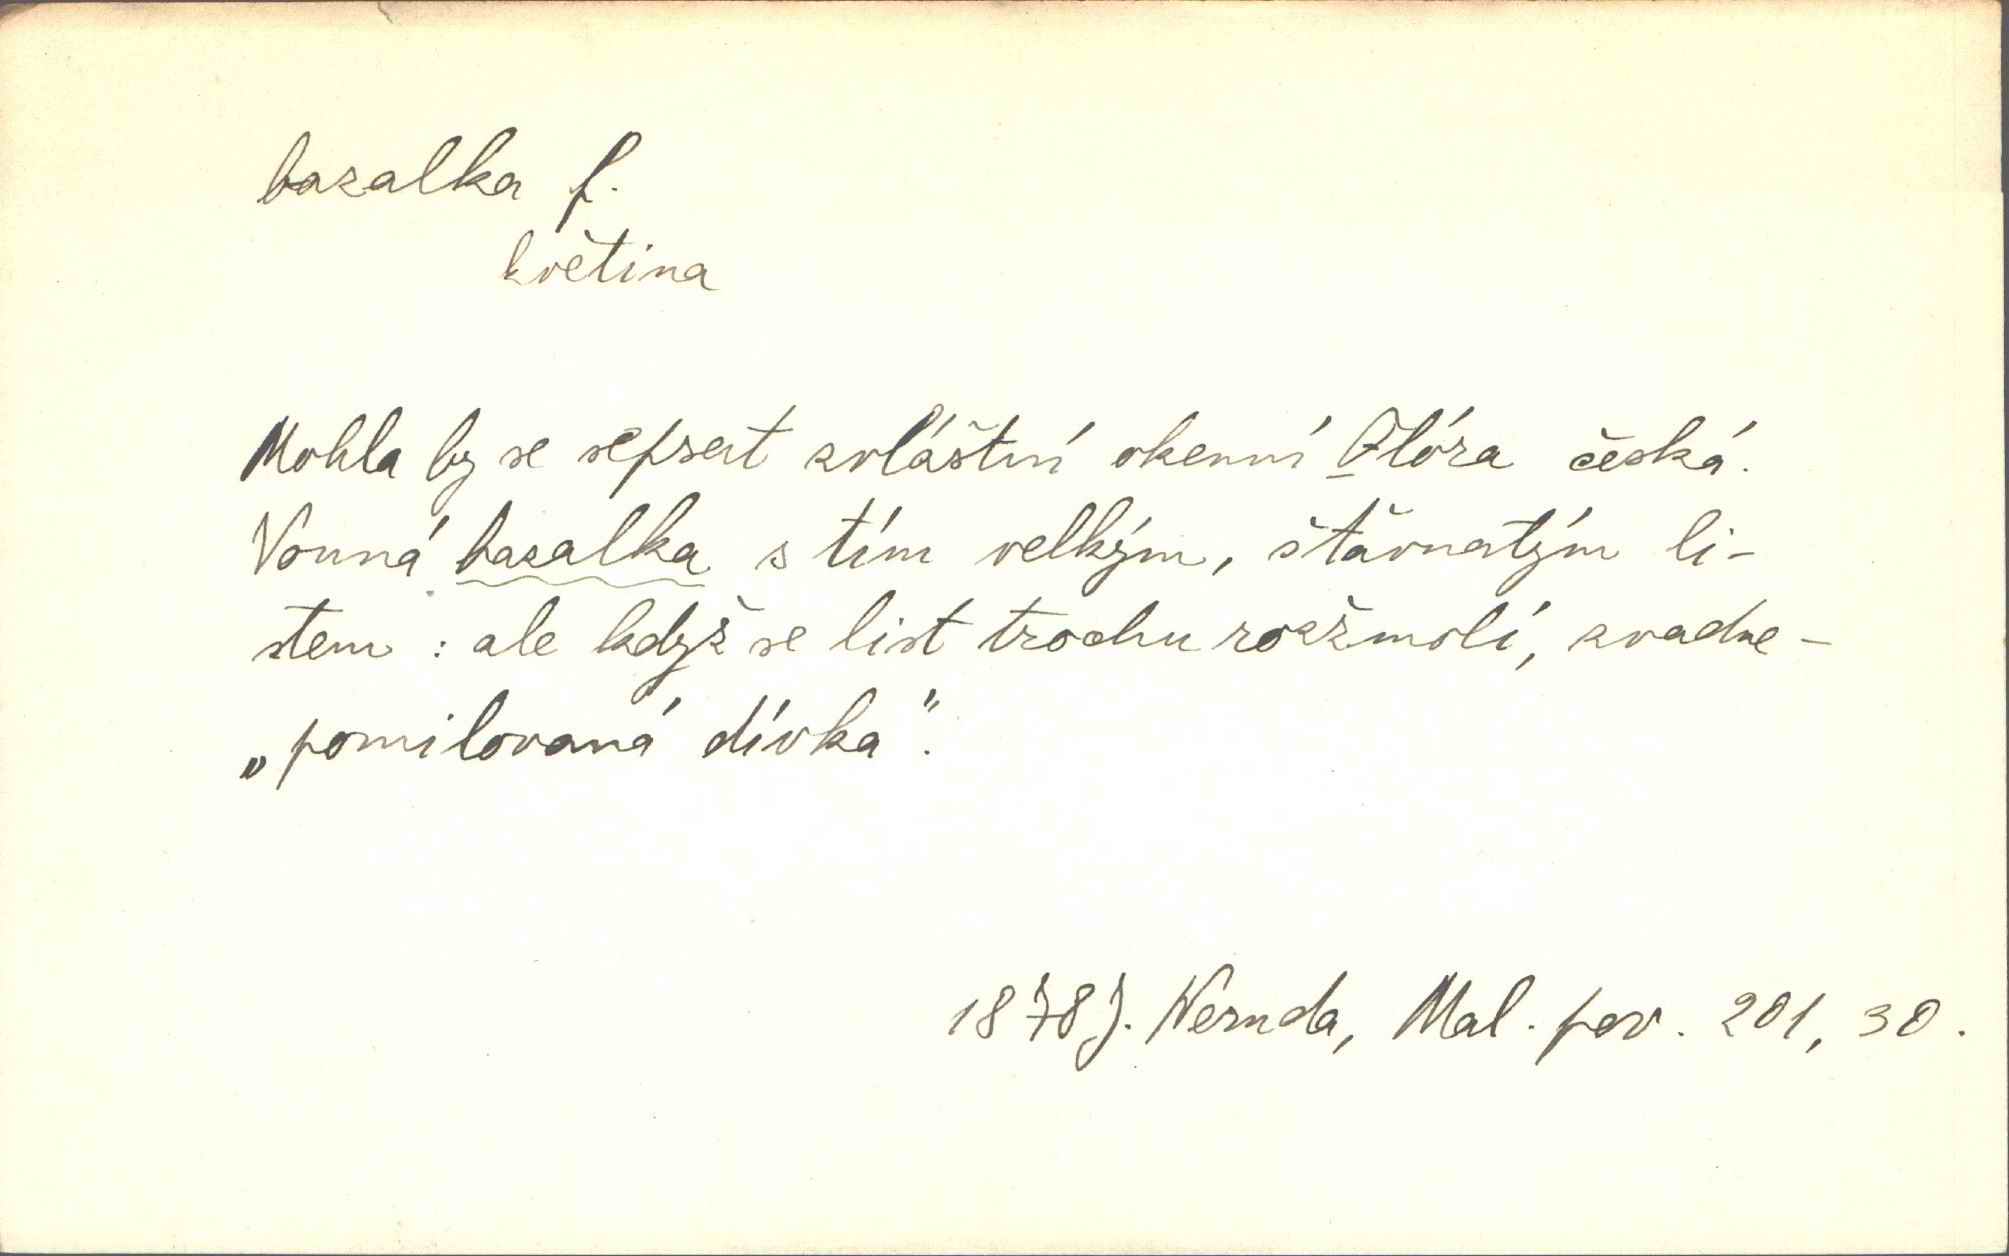 bazalka f.
květina
Mohla by se sepsat zvláštní okenní Flóra česká.
Vonná bazalka s tím velkým, šťavnatým li-
stem : ale když se list trochu rozžmolí, zvadne -
„pomilovaná dívka".
1878 J. Neruda, Mal. pov. 201, 30.